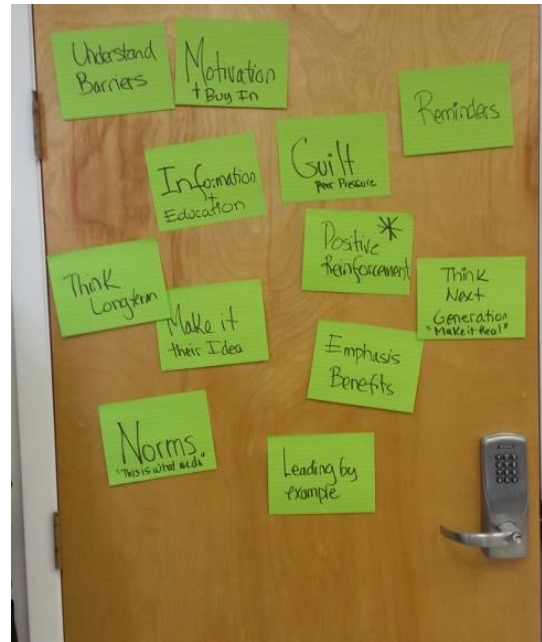 Understand
Barriers
Motivation
+ Buy In
Reminders
Guilt
Peer Pressure
Information
+
Education
Positive *
Reinforcement
Think
Longterm
Think
Next
Generation
"Make it Real"
Make it
their Idea
Emphasis
Benefits
Norms
"This is what
Leading by
example